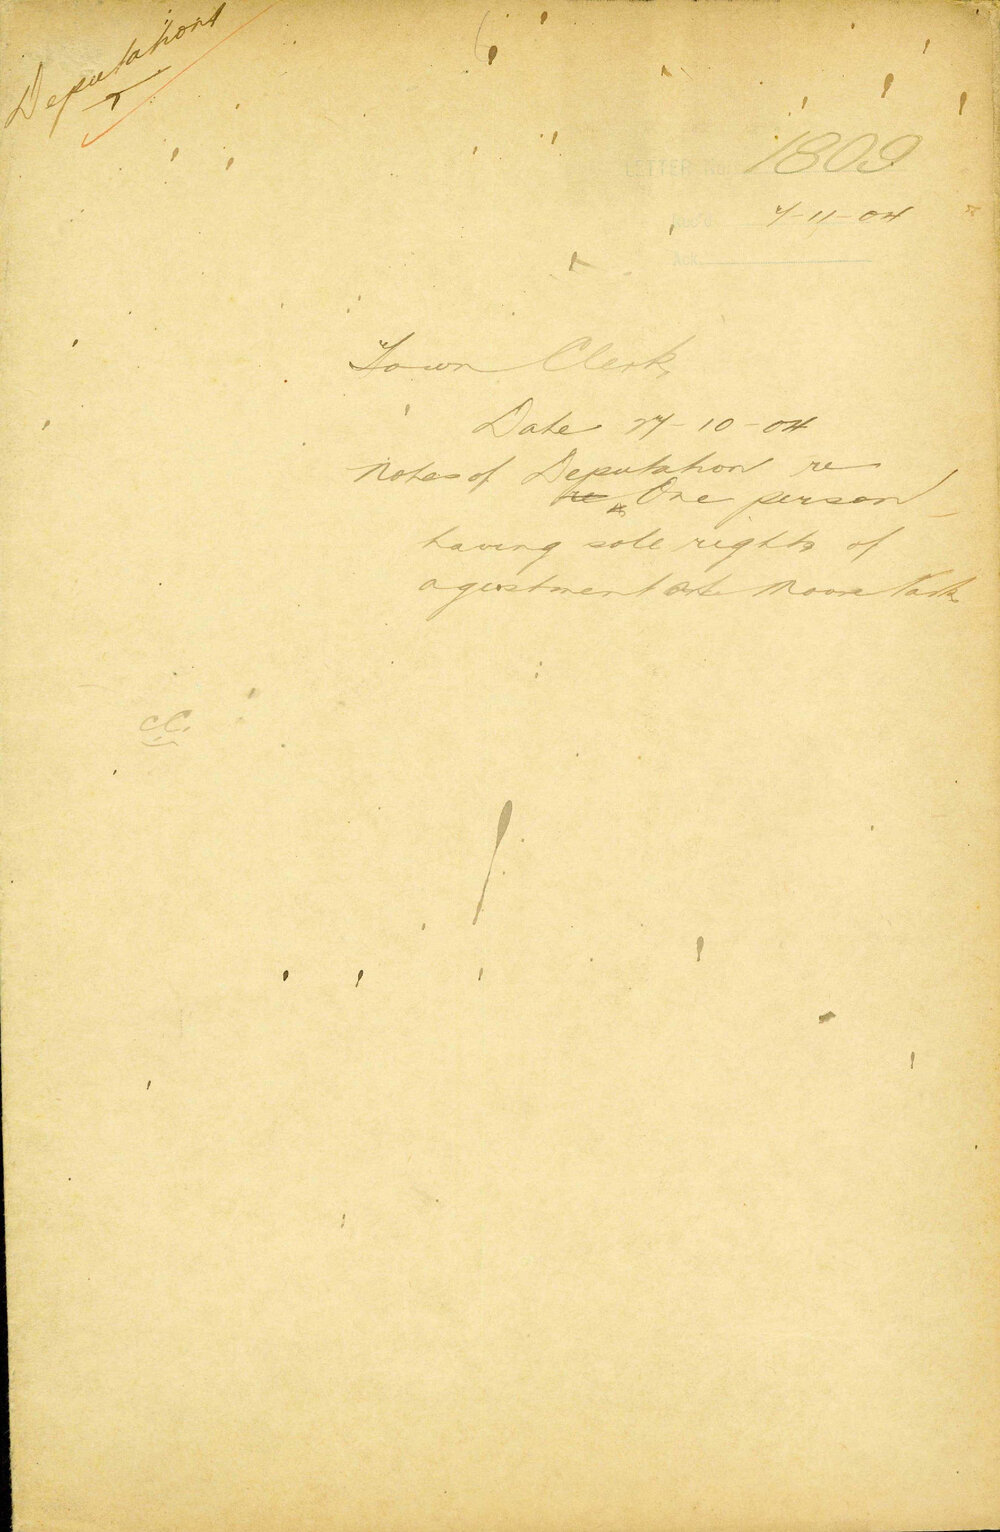 Deputations
LETTER 1809
7-11-04
Ack.
Town Clerk
Date 27-10-04
Notes of Deputation re
re One person
having sole rights of
agustment at Moore Park
CC.